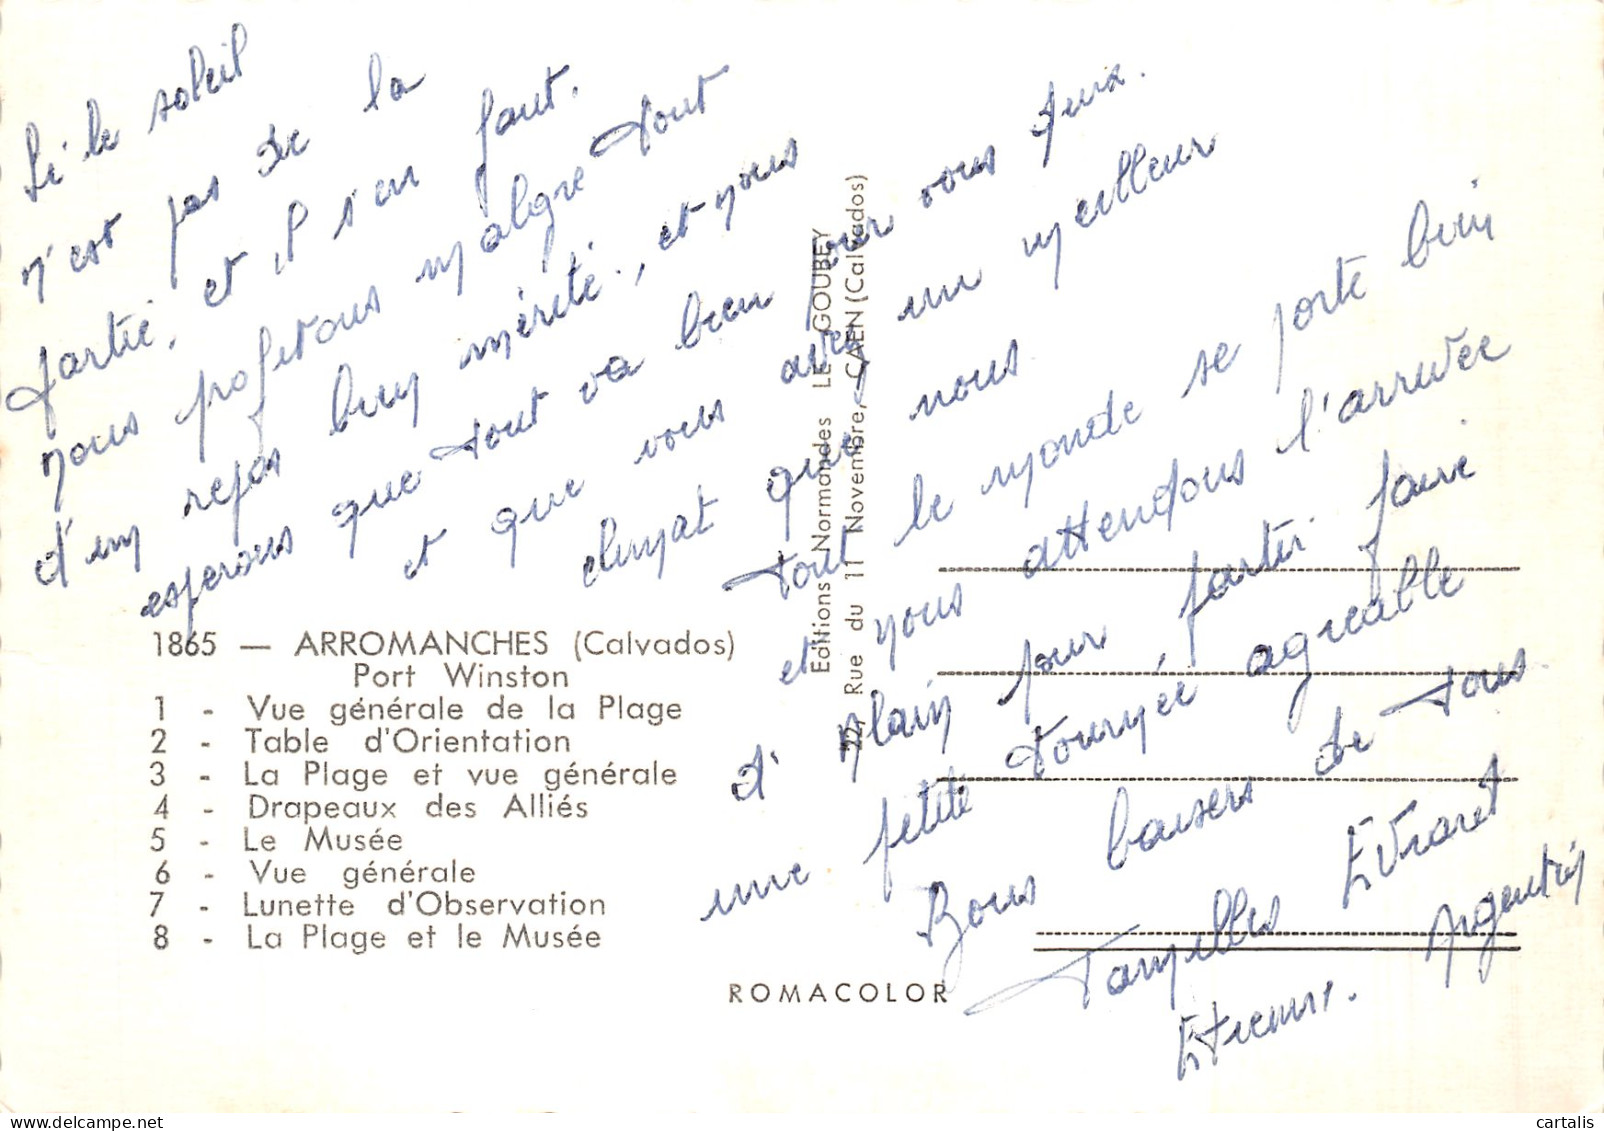 Si le soleil
n'est pas de la
partie, et il s'en faut.
nous profitons malgré tout
d'un repos bien mérité, et nous
esperons que tout va bien pour vous deux.
et que vous avez un meilleur
climat que nous
tout le monde se porte bien
et nous attendons l'arrivée
d'Alain pour partir faire
une petite tournée agreable
Bons baisers de tous
Familles Evrard
Etienne. Argentin
1865 — ARROMANCHES (Calvados)
Port Winston
1 - Vue générale de la Plage
2 - Table d'Orientation
3 - La Plage et vue générale
4 - Drapeaux des Alliés
5 - Le Musée
6 - Vue générale
7 - Lunette d'Observation
8 - La Plage et le Musée
Editions Normandes LE GOUBEY
22, Rue du 11 Novembre, CAEN (Calvados)
ROMACOLOR
cartalis